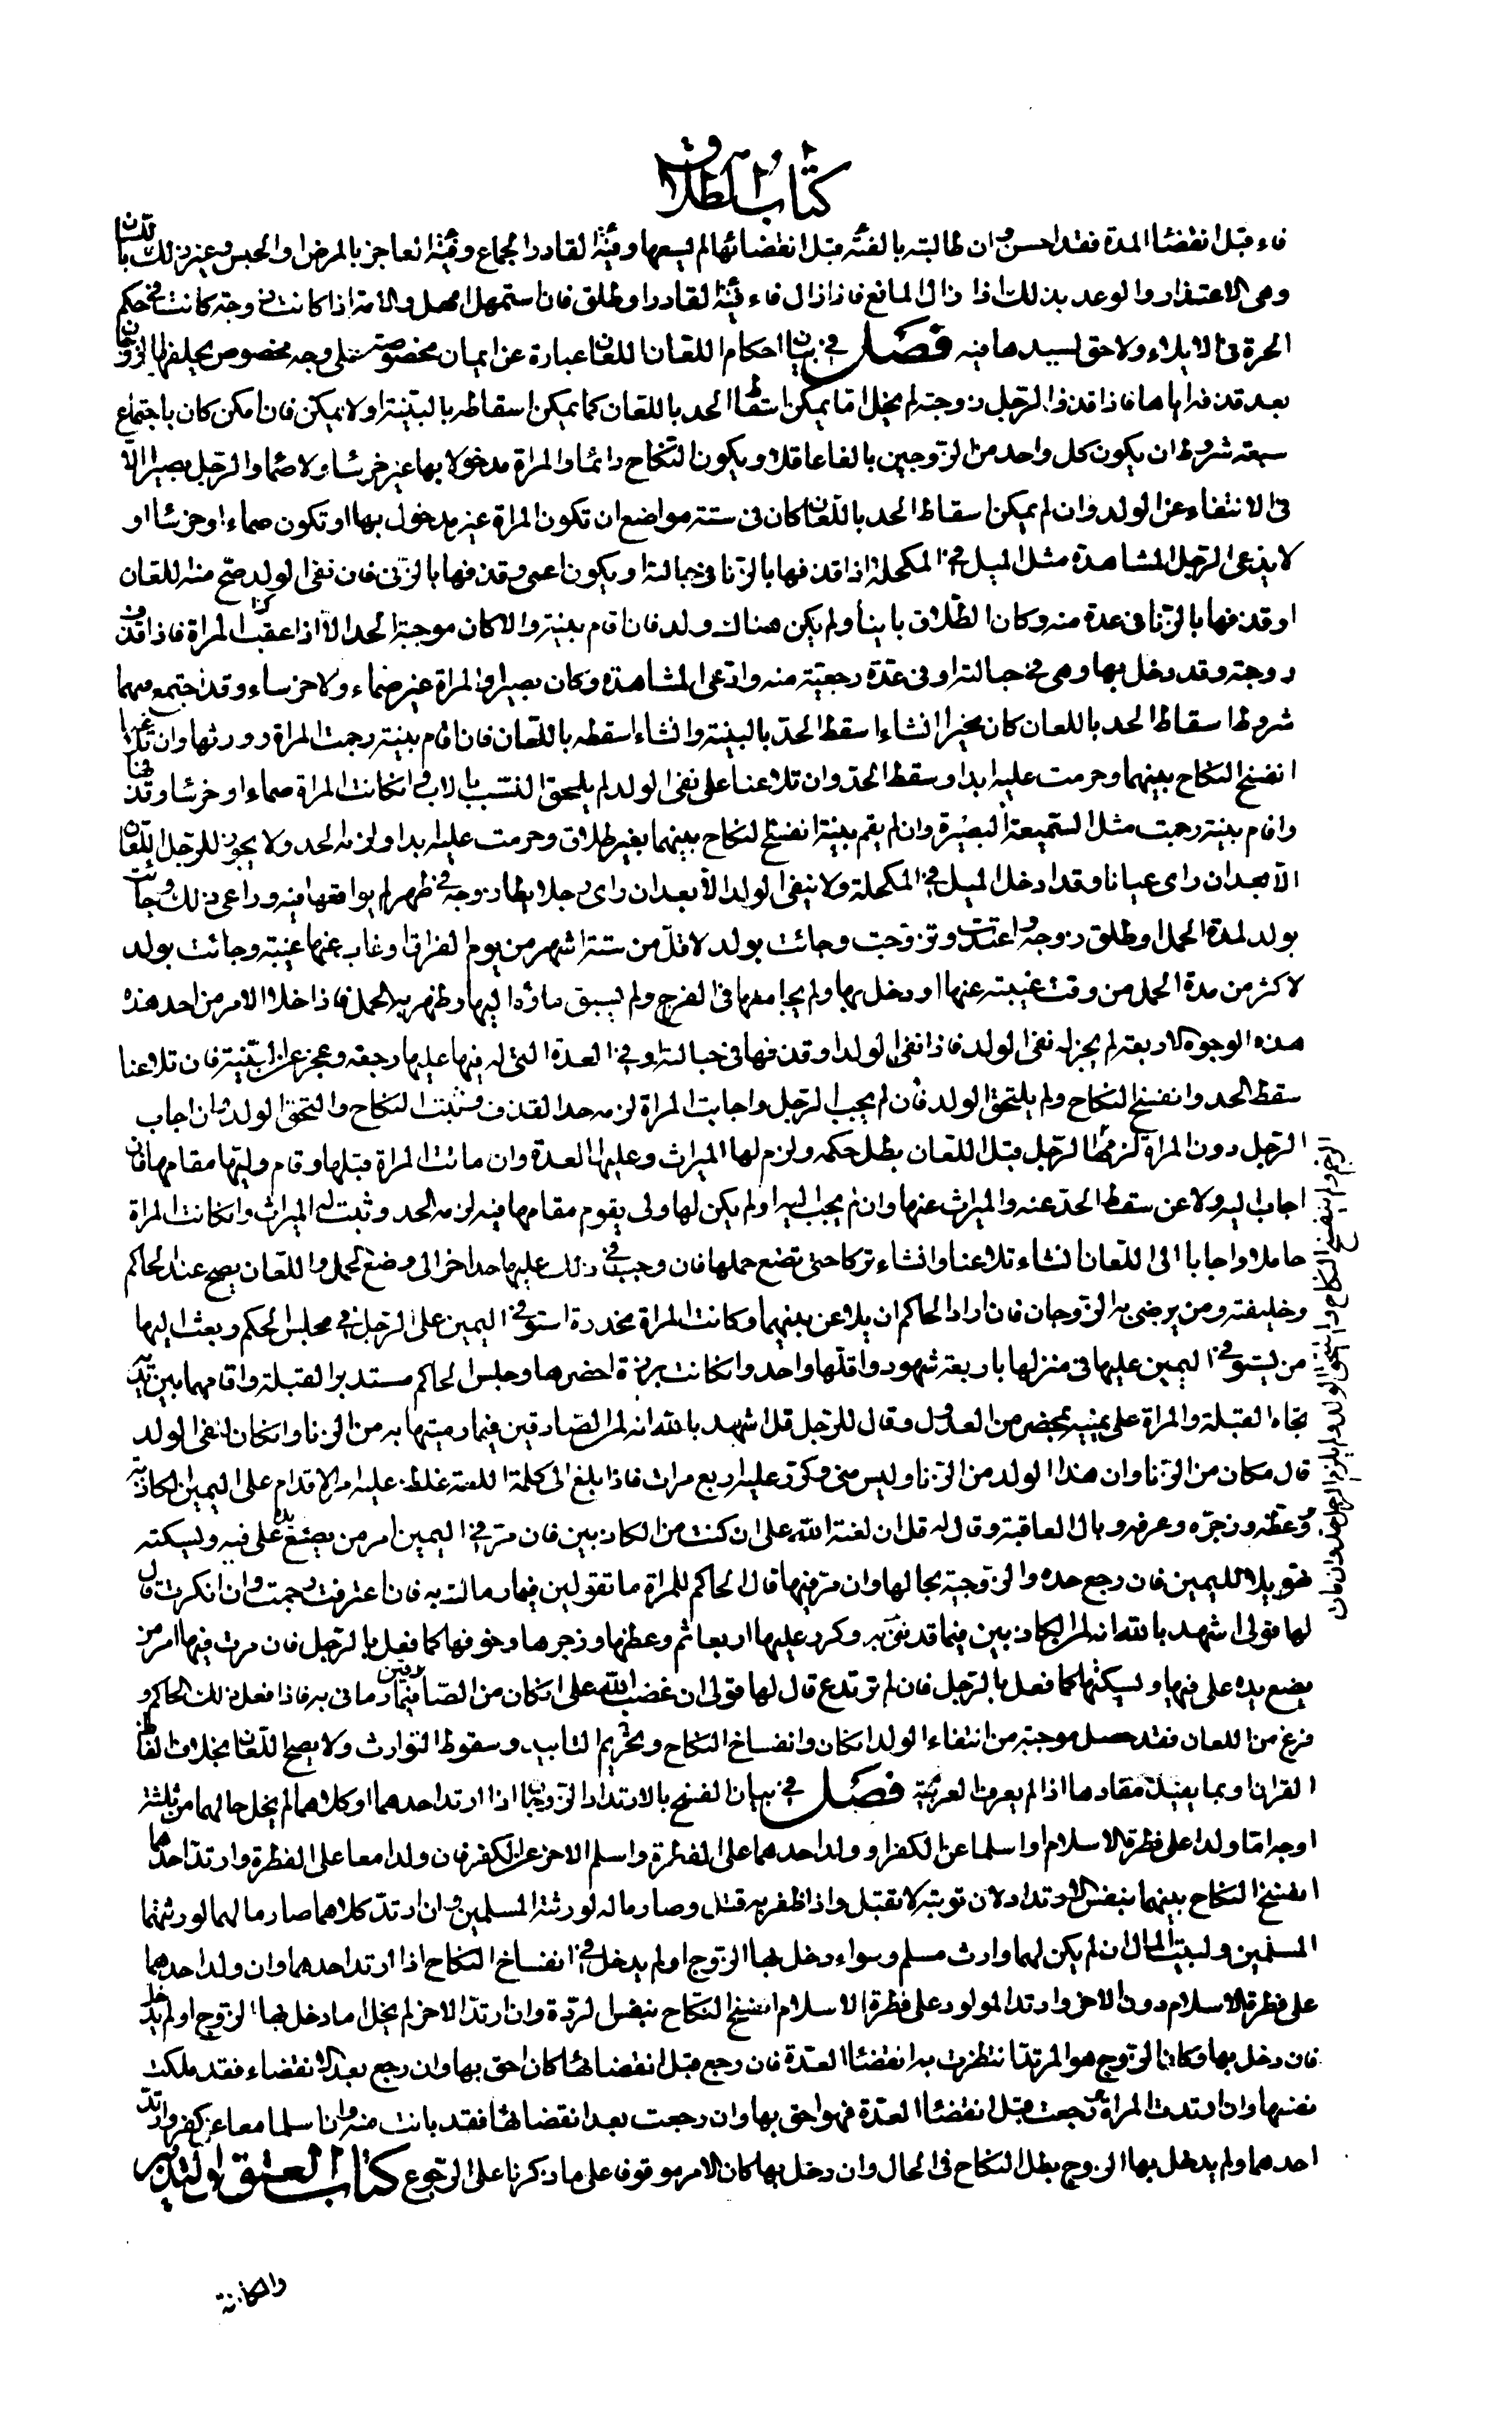 كتاب الطلاق
فاء قبل انقضاء المدة فقد احسن وان طالبته بالفئة قبل انقضائها لم يسعها وفيئة القادر الجماع وفيئة العاجز بالمرض او الحبس وغير ذلك باللسان
وهى الاعتذار والوعد بذلك اذا زال المانع فاذا زال فاء فيئة القادر او طلق فان استمهل امهل والامة اذا كانت زوجة كانت فى حكم
الحرة فى الايلاء ولا حق لسيدها فيه فصل فى بيان احكام اللعان اللعان عبارة عن ايمان مخصوصة على وجه مخصوص يحلف بها الزوجان
بعد قذفه اياها فاذا قذف الرجل زوجته لم يخل اما يمكن اسقاط الحد باللعان كما يمكن اسقاطه بالبينة او لا يمكن فان امكن كان باجتماع
سبعة شروط ان يكون كل واحد من الزوجين بالغا عاقلا ويكون النكاح دائما والمراة مدخولا بها غير خرساء ولا صماء والرجل بصيرا الا
فى الانتفاء عن الولد وان لم يمكن اسقاط الحد باللعان كان فى ستة مواضع ان تكون المراة غير مدخول بها او تكون صماء او خرساء او
لا يدعى الرجل المشاهدة مثل الميل فى المكحلة اذا قذفها بالزنا فى حبالته او يكون اعمى وقذفها بالزنى فان نفى الولد صح منه اللعان
او قذفها بالزنا فى عدة منه وكان الطلاق باينا ولم يكن هناك ولد فان اقام بينة والا كان موجبه الحد الا اذا عقب المراة فاذا قذف
زوجته وقد دخل بها وهى فى حبالته او فى عدة رجعية منه وادعى المشاهدة وكان بصيرا والمراة غير صماء ولا خرساء وقد اجتمع فيهما
شروط اسقاط الحد باللعان كان مخيرا ان شاء اسقط الحد بالبينة وان شاء اسقطه باللعان فان اقام بينة رجمت المراة وورثها وان تلاعنا
انفسخ النكاح بينهما وحرمت عليه ابدا وسقط الحد وان تلاعنا على نفى الولد لم يلحق النسب بالاب وان كانت المراة صماء او خرساء وقذفها
واقام بينة رجمت مثل السميعة البصيرة وان لم يقم بينة انفسخ النكاح بينهما بغير طلاق وحرمت عليه ابدا ولزمه الحد ولا يجوز للرجل اللعان
الا بعد ان راى عيانا وقد ادخل الميل فى المكحلة ولا ينفى الولد الا بعد ان راى رجلا يطا زوجه فى طهر لم يواقعها فيه وراعى ذلك وجائت
بولد لمدة الحمل او طلق زوجه واعتدت وتزوجت وجائت بولد لاقل من ستة اشهر من يوم الفراق او غاب عنها غيبة وجائت بولد
لاكثر من مدة الحمل من وقت غيبته عنها او دخل بها ولم يجامعها فى الفرج ولم يسبق ماؤه اليها وظهر به الحمل فاذا خلا الامر من احد هذه
هذه الوجوه الاربعة لم يجز له نفى الولد فاذا نفى الولد او قذفها فى حبالته او فى العدة التى له فيها عليها رجعة وعجز عن البينة فان تلاعنا
سقط الحد وانفسخ النكاح ولم يلتحق الولد فان لم يجب الرجل واجابت المراة لزمه حد القذف وثبت النكاح والتحق الولد وان اجاب
الرجل دون المراة لزمها الرجل قبل اللعان بطل حكمه ولزم لها الميراث وعليها العدة وان ماتت المراة قبلها وقام وليها مقامها فان
اجاب اليه ولاعن سقط الحد عنه والميراث عنها وان لم يجب اليه او لم يكن لها ولى يقوم مقامها فيه لزمه الحد وثبت له الميراث وان كانت المراة
حاملا واجابا الى اللعان ان شاء تلاعنا وان شاء تركا حتى تضع حملها فان وجب فى ذلك عليها حد اخر الى وضع الحمل واللعان يصح عند الحاكم
وخليفته ومن يرضى به الزوجان فان اراد الحاكم ان يلاعن بينهما وكانت المراة مخدرة استوفى اليمين على الرجل فى مجلس الحكم وبعث اليها
من يستوفى اليمين عليها فى منزلها باربعة شهود واقلها واحد وان كانت برزة احضرها وجلس الحاكم مستدبر القبلة واقامهما بين يديه
تجاه القبلة والمراة على يمينه بمحضر من العدول وقال للرجل قل اشهد بالله انه لمن الصادقين فيما رميتها به من الزنا وان كان لنفى الولد
قال مكان من الزنا وان هذا الولد من الزنا وليس منى وكرر عليه اربع مرات فاذا بلغ الى كلمة اللعنة غلظ عليه الاقدام على اليمين الكاذبة
وعظه وزجره وعرفه وبال العاقبة وقال له قل ان لعنة الله على ان كنت من الكاذبين فان مر فى اليمين امر من يضع يده على فيه ويسكته
تهويلا لليمين فان رجع حده والزوجية بحالها وان مر فيها قال الحاكم للمراة ما تقولين فيما رماك به فان اعترفت رجمت وان انكرت قال
لها قولى اشهد بالله انه لمن الكاذبين فيما قذفنى به وكرر عليها اربعا ثم وعظها وزجرها وخوفها كما فعل بالرجل فان مرت فيها امر من
يضع يده على فيها ويسكتها كما فعل بالرجل فان لم ترتدع قال لها قولى ان غضب الله على ان كان من الصادقين فيما رمانى به فاذا فعل ذلك الحاكم و
فرغ من اللعان فقد حصل موجبه من انتفاء الولد ان كان وانفساخ النكاح وتحريم التابيد وسقوط التوارث ولا يصح اللعان بخلاف الفاظ
القران او بما يفيد مفادها اذا لم يعرف العربية فصل فى بيان الفسخ بالارتداد الزوجان اذا ارتد احدهما او كلاهما لم يخل حالهما من ثلثة
اوجه اما ولدا على فطرة الاسلام او اسلما عن الكفر او ولد احدهما على الفطرة واسلم الاخر عن الكفر فان ولدا معا على الفطرة وارتد احدهما
انفسخ النكاح بينهما بنفس الارتداد لان توبته لا تقبل واذا ظفر به قتل وصار ماله لورثته المسلمين وان ارتد كلاهما صار مالهما لورثتهما
المسلمين ولبيت المال ان لم يكن لهما وارث مسلم وسواء دخل بها الزوج او لم يدخل فى انفساخ النكاح اذا ارتد احدهما وان ولد احدهما
على فطرة الاسلام دون الاخر وارتد المولود على فطرة الاسلام انفسخ النكاح بنفس الردة وان ارتد الاخر لم يخل اما دخل بها الزوج او لم يدخل
فان دخل بها وكان الزوج هو المرتد انتظرت به انقضاء العدة فان رجع قبل انقضائها كان احق بها وان رجع بعد الانقضاء فقد ملكت
نفسها وان ارتدت المراة ورجعت قبل انقضاء العدة فهو احق بها وان رجعت بعد انقضائها فقد بانت منه وان اسلما معا عن كفر وارتد
احدهما ولم يدخل بها الزوج بطل النكاح فى الحال وان دخل بها كان الامر موقوفا على ما ذكرنا على الرجوع كتاب العتق والتدبير
والمكاتبة
الرجم ولم ينفسخ النكاح والتحق الولد ولم يلزم الرجل حد وان مات